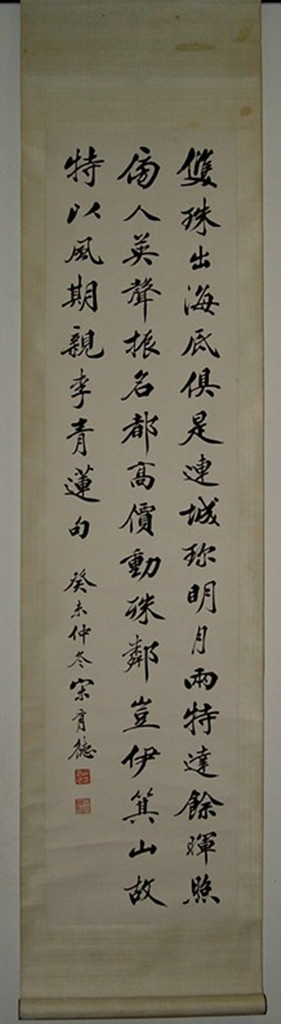 雙珠出海底俱是連城珍明月兩特達餘暉照
傍人英聲振名都高價動殊鄰豈伊箕山故
特以風期親李青蓮句
癸未仲冬宋育德